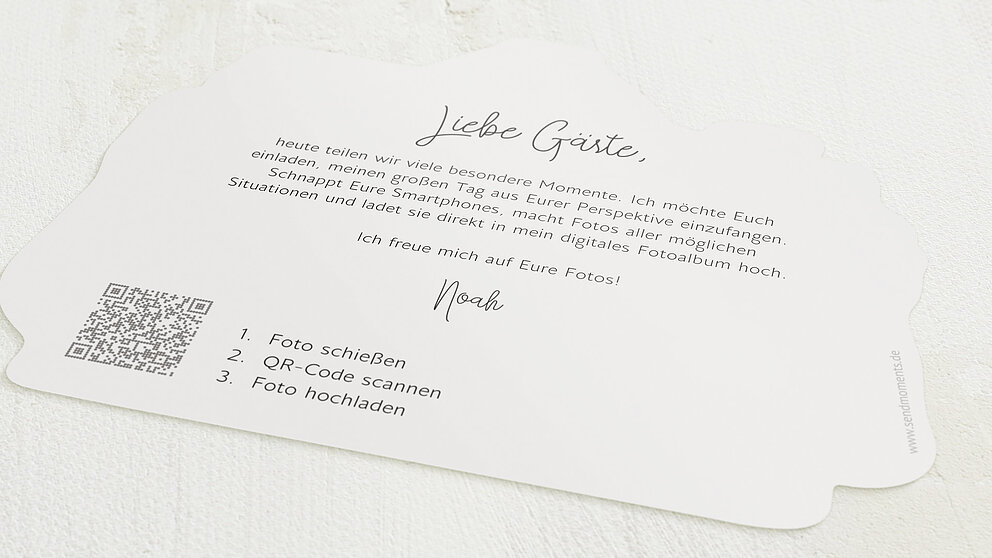 Liebe Gäste,
heute teilen wir viele besondere Momente. Ich möchte Euch
einladen, meinen großen Tag aus Eurer Perspektive einzufangen.
Schnappt Eure Smartphones, macht Fotos aller möglichen
Situationen und ladet sie direkt in mein digitales Fotoalbum hoch.
Ich freue mich auf Eure Fotos!
Noah
1. Foto schießen
2. QR-Code scannen
3. Foto hochladen
www.sendmoments.de